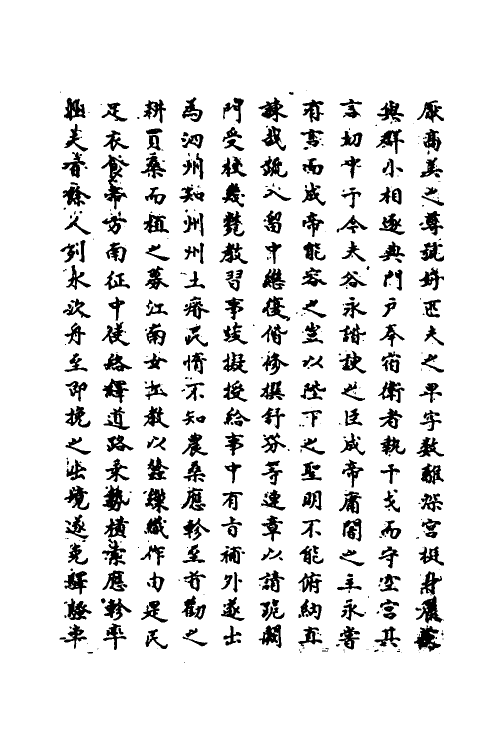 厭高美之尊號好匹夫之卑字數離深宮挺身晨夜
與群小相逐典門戶奉宿衛者執干戈而守空宮其
言切中于今夫谷永諧諛之臣成帝庸闇之主永嘗
有言而成帝能容之豈以陛下之聖明不能俯納直
諫哉疏入留中繼復偕修撰舒芬等連章以請跪闕
門受杖幾斃教習事竣擬授給事中有旨補外遂出
為泗州知州州土瘠民惰不知農桑應軫至首勸之
耕買桑而植之募江南女工教以蠶繅織作由是民
足衣食帝方南征中使絡繹道路乘勢橫索應軫率
壯夫百餘人列水次舟至即挽之出境遂免驛騷車